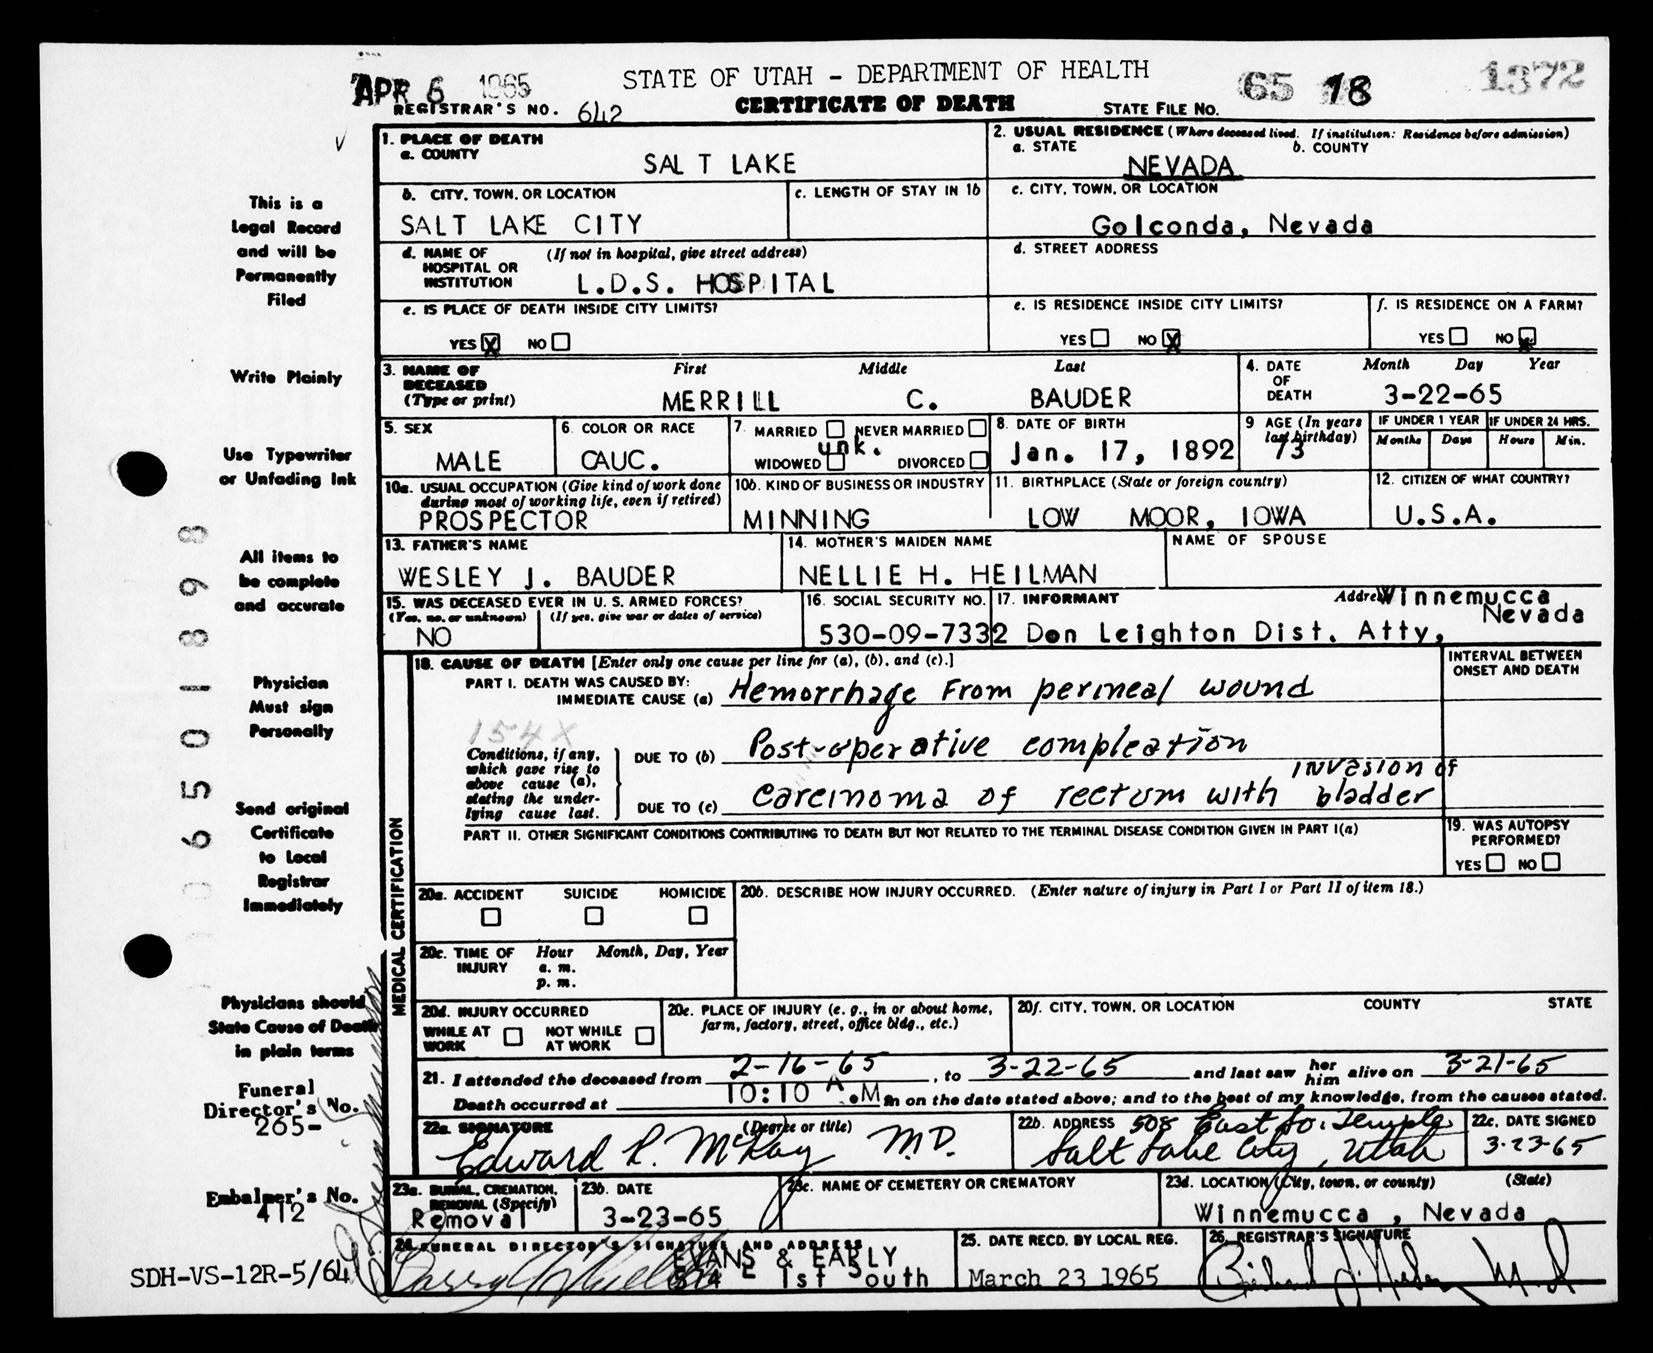 APR 6 1965
STATE OF UTAH - DEPARTMENT OF HEALTH
65 18 1372
REGISTRAR'S NO. 642
CERTIFICATE OF DEATH
STATE FILE NO.
This is a
Legal Record
and will be
Permanently
Filed
Write Plainly
Use Typewriter
or Unfading Ink
All items to
be complete
and accurate
Physician
Must sign
Personally
Send original
Certificate
to Local
Registrar
Immediately
Physicians should
State Cause of Death
in plain terms
Funeral
Director's No.
265-
Embalmer's No.
412
SDH-VS-12R-5/64
0 6 5 0 1 8 9 8
1. PLACE OF DEATH
a. COUNTY
SALT LAKE
2. USUAL RESIDENCE (Where deceased lived. If institution: Residence before admission)
a. STATE b. COUNTY
NEVADA
b. CITY, TOWN, OR LOCATION
SALT LAKE CITY
c. LENGTH OF STAY IN 1b
c. CITY, TOWN, OR LOCATION
Golconda, Nevada
d. NAME OF (If not in hospital, give street address)
HOSPITAL OR
INSTITUTION
L.D.S. HOSPITAL
d. STREET ADDRESS
e. IS PLACE OF DEATH INSIDE CITY LIMITS?
YES X NO
e. IS RESIDENCE INSIDE CITY LIMITS?
YES NO X
f. IS RESIDENCE ON A FARM?
YES NO X
3. NAME OF First Middle Last
DECEASED
(Type or print)
MERRILL C. BAUDER
4. DATE Month Day Year
OF
DEATH
3-22-65
5. SEX
MALE
6. COLOR OR RACE
CAUC.
7. MARRIED NEVER MARRIED
unk.
WIDOWED DIVORCED
8. DATE OF BIRTH
Jan. 17, 1892
9 AGE (In years
last birthday)
73
IF UNDER 1 YEAR
Months Days
IF UNDER 24 HRS.
Hours Min.
10a. USUAL OCCUPATION (Give kind of work done
during most of working life, even if retired)
PROSPECTOR
10b. KIND OF BUSINESS OR INDUSTRY
MINNING
11. BIRTHPLACE (State or foreign country)
LOW MOOR, IOWA
12. CITIZEN OF WHAT COUNTRY?
U.S.A.
13. FATHER'S NAME
WESLEY J. BAUDER
14. MOTHER'S MAIDEN NAME
NELLIE H. HEILMAN
NAME OF SPOUSE
15. WAS DECEASED EVER IN U.S. ARMED FORCES?
(Yes, no, or unknown) (If yes, give war or dates of service)
NO
16. SOCIAL SECURITY NO.
530-09-7332
17. INFORMANT Address Winnemucca
Nevada
Don Leighton Dist. Atty,
MEDICAL CERTIFICATION
18. CAUSE OF DEATH [Enter only one cause per line for (a), (b), and (c).]
INTERVAL BETWEEN
ONSET AND DEATH
PART I. DEATH WAS CAUSED BY:
IMMEDIATE CAUSE (a) Hemorrhage From perineal wound
154X
Conditions, if any,
which gave rise to
above cause (a),
stating the under-
lying cause last.
DUE TO (b) Post-operative complection
invasion of
DUE TO (c) carcinoma of rectum with bladder
PART II. OTHER SIGNIFICANT CONDITIONS CONTRIBUTING TO DEATH BUT NOT RELATED TO THE TERMINAL DISEASE CONDITION GIVEN IN PART I(a)
19. WAS AUTOPSY
PERFORMED?
YES NO
20a. ACCIDENT SUICIDE HOMICIDE
20b. DESCRIBE HOW INJURY OCCURRED. (Enter nature of injury in Part I or Part II of item 18.)
20c. TIME OF Hour Month, Day, Year
INJURY a. m.
p. m.
20d. INJURY OCCURRED
WHILE AT NOT WHILE
WORK AT WORK
20e. PLACE OF INJURY (e. g., in or about home,
farm, factory, street, office bldg., etc.)
20f. CITY, TOWN, OR LOCATION COUNTY STATE
21. I attended the deceased from 2-16-65, to 3-22-65 and last saw her him alive on 3-21-65
Death occurred at 10:10 A.M. m on the date stated above; and to the best of my knowledge, from the causes stated.
22a. SIGNATURE (Degree or title)
Edward R. McKay M.D.
22b. ADDRESS 508 East So. Temple
Salt Lake City, Utah
22c. DATE SIGNED
3-23-65
23a. BURIAL, CREMATION,
REMOVAL (Specify)
Removal
23b. DATE
3-23-65
23c. NAME OF CEMETERY OR CREMATORY
23d. LOCATION (City, town, or county) (State)
Winnemucca, Nevada
24. FUNERAL DIRECTOR'S SIGNATURE AND ADDRESS
EVANS & EARLY
574 E 1st South
25. DATE RECD. BY LOCAL REG.
March 23 1965
26. REGISTRAR'S SIGNATURE